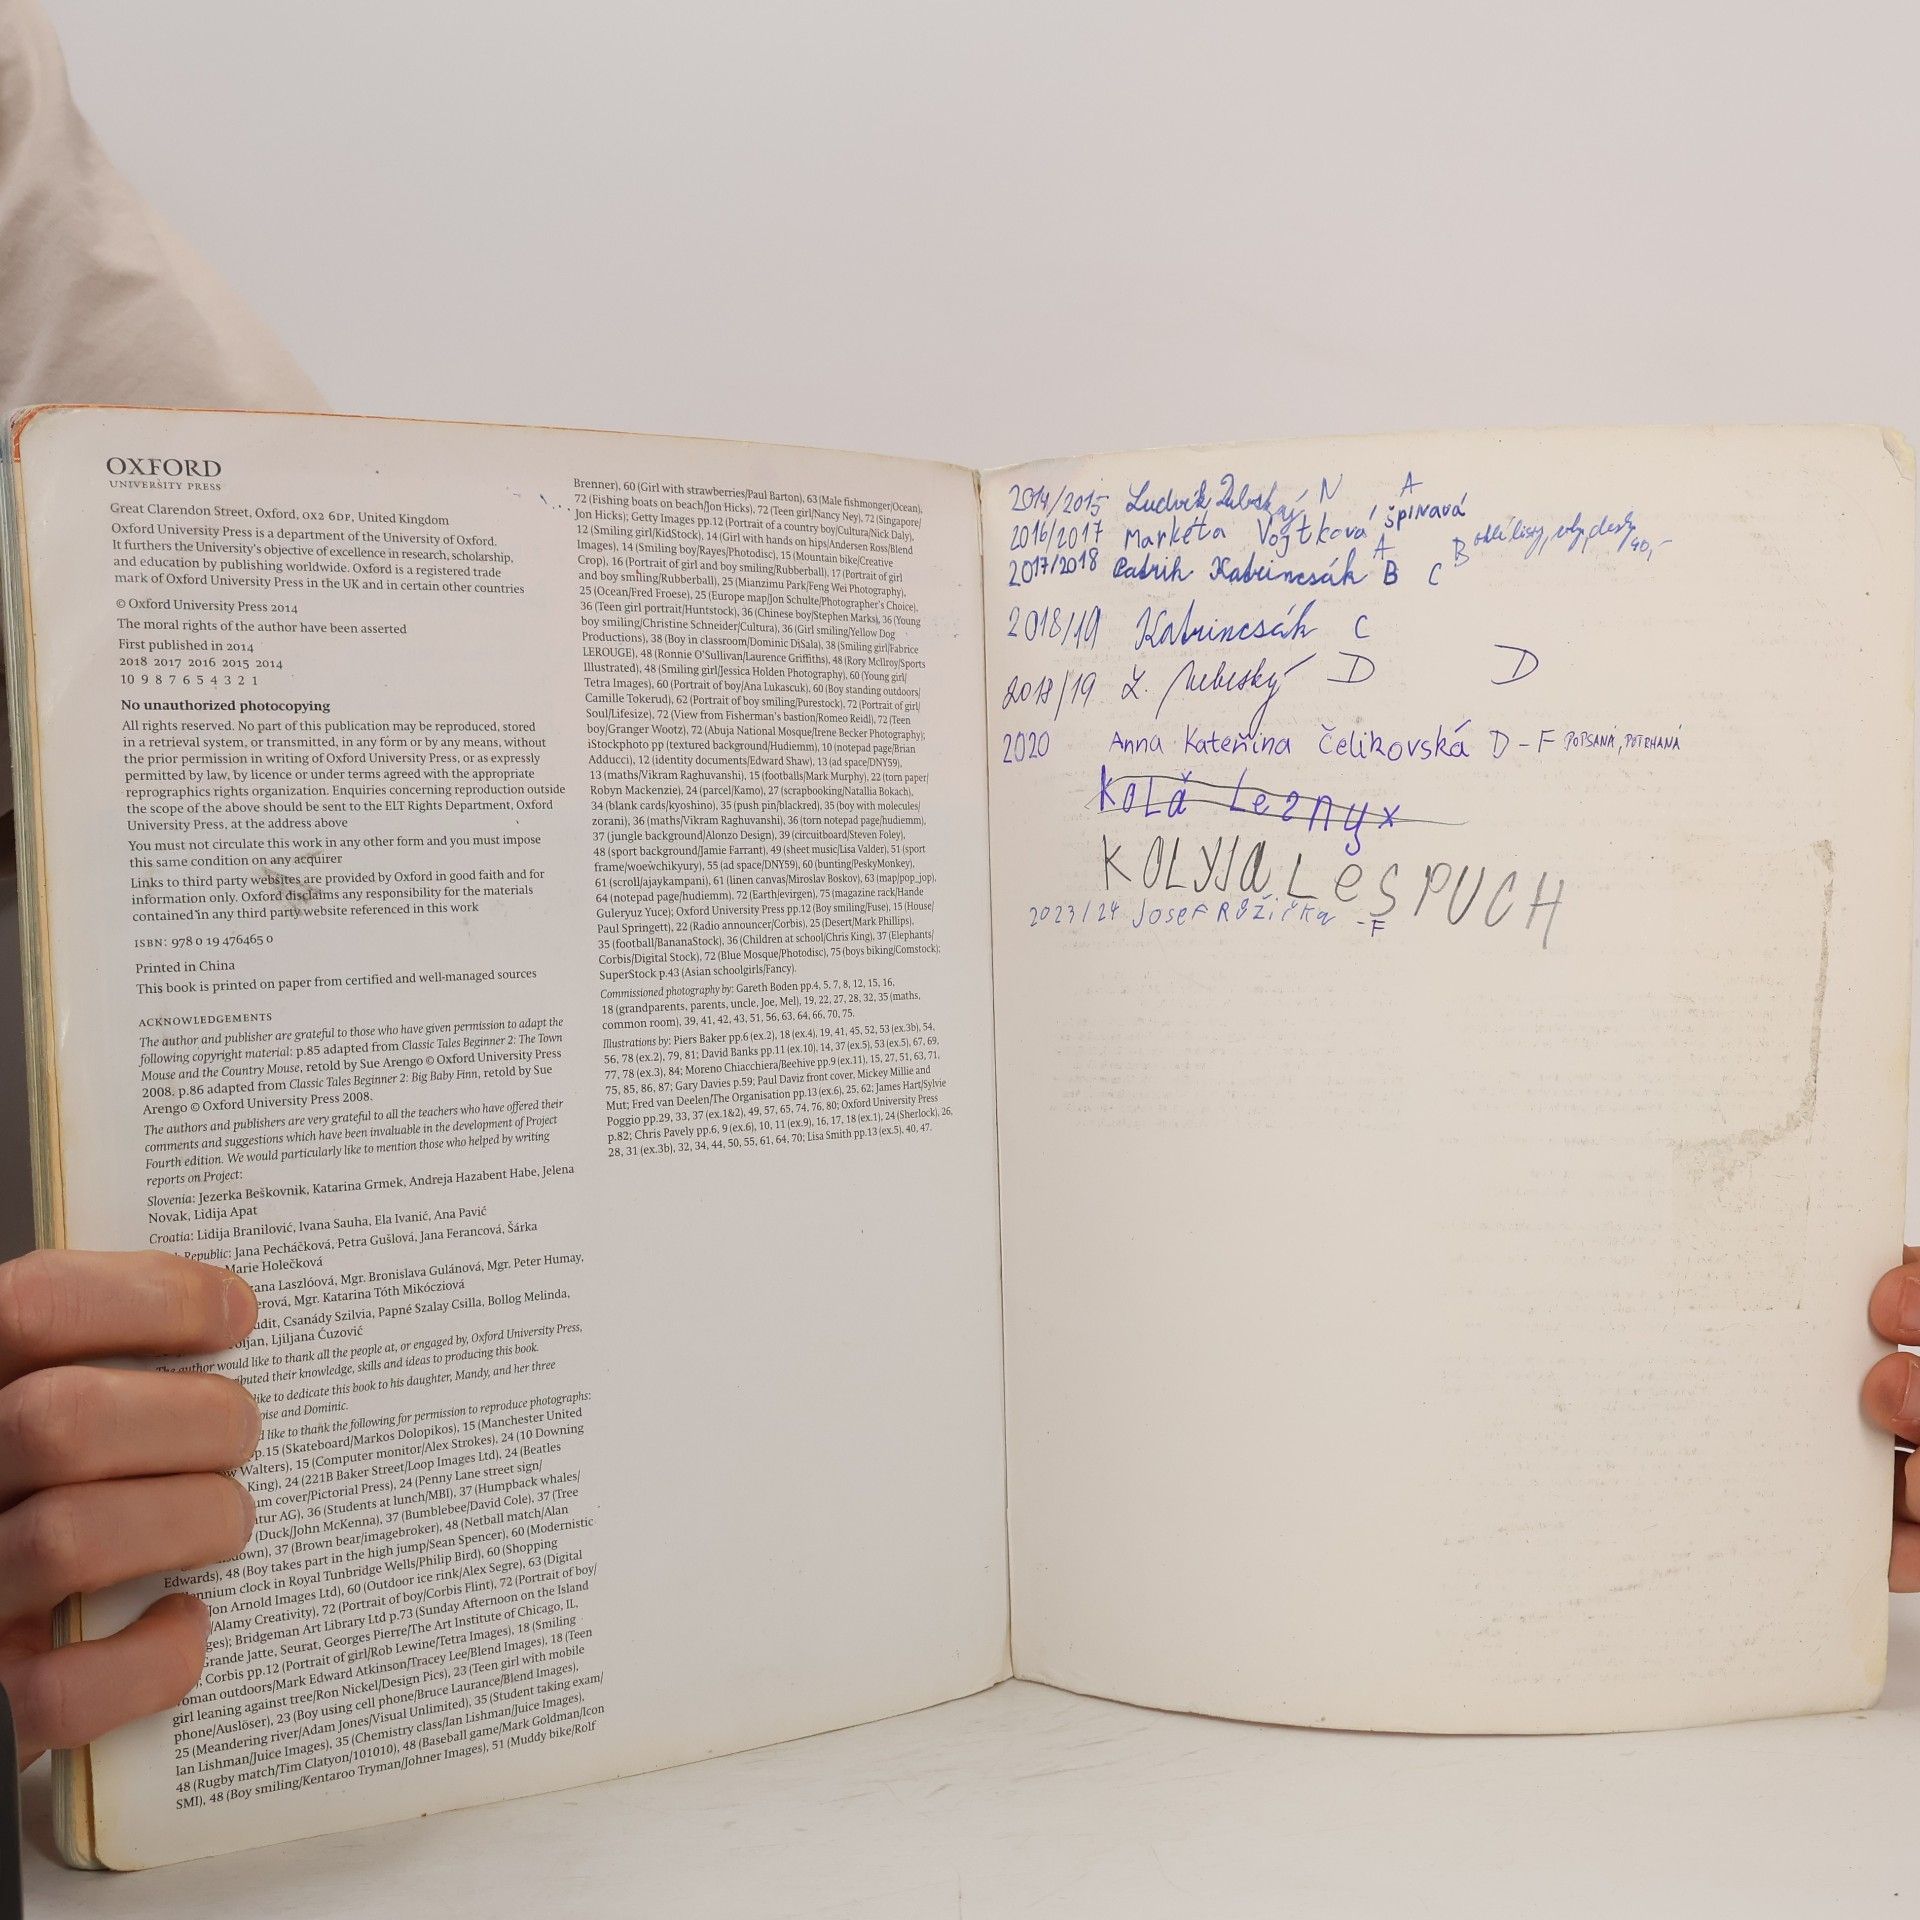 OXFORD
UNIVERSITY PRESS
Great Clarendon Street, Oxford, OX2 6DP, United Kingdom
Oxford University Press is a department of the University of Oxford.
It furthers the University's objective of excellence in research, scholarship,
and education by publishing worldwide. Oxford is a registered trade
mark of Oxford University Press in the UK and in certain other countries
© Oxford University Press 2014
The moral rights of the author have been asserted
First published in 2014
2018 2017 2016 2015 2014
10 9 8 7 6 5 4 3 2 1
No unauthorized photocopying
All rights reserved. No part of this publication may be reproduced, stored
in a retrieval system, or transmitted, in any form or by any means, without
the prior permission in writing of Oxford University Press, or as expressly
permitted by law, by licence or under terms agreed with the appropriate
reprographics rights organization. Enquiries concerning reproduction outside
the scope of the above should be sent to the ELT Rights Department, Oxford
University Press, at the address above
You must not circulate this work in any other form and you must impose
this same condition on any acquirer
Links to third party websites are provided by Oxford in good faith and for
information only. Oxford disclaims any responsibility for the materials
contained in any third party website referenced in this work
ISBN: 978 0 19 476465 0
Printed in China
This book is printed on paper from certified and well-managed sources
ACKNOWLEDGEMENTS
The author and publisher are grateful to those who have given permission to adapt the
following copyright material: p.85 adapted from Classic Tales Beginner 2: The Town
Mouse and the Country Mouse, retold by Sue Arengo © Oxford University Press
2008. p.86 adapted from Classic Tales Beginner 2: Big Baby Finn, retold by Sue
Arengo © Oxford University Press 2008.
The authors and publishers are very grateful to all the teachers who have offered their
comments and suggestions which have been invaluable in the development of Project
Fourth edition. We would particularly like to mention those who helped by writing
reports on Project:
Slovenia: Jezerka Beškovnik, Katarina Grmek, Andreja Hazabent Habe, Jelena
Novak, Lidija Apat
Croatia: Lidija Branilović, Ivana Sauha, Ela Ivanić, Ana Pavić
Republic: Jana Pecháčková, Petra Gušlová, Jana Ferancová, Šárka
Marie Holečková
Laszlóová, Mgr. Bronislava Gulánová, Mgr. Peter Humay,
Mgr. Katarina Tóth Mikócziová
Csanády Szilvia, Papné Szalay Csilla, Bollog Melinda,
Ljiljana Ćuzović
The author would like to thank all the people at, or engaged by, Oxford University Press,
their knowledge, skills and ideas to producing this book.
like to dedicate this book to his daughter, Mandy, and her three
and Dominic.
like to thank the following for permission to reproduce photographs:
pp.15 (Skateboard/Markos Dolopikos), 15 (Manchester United
Walters), 15 (Computer monitor/Alex Strokes), 24 (10 Downing
King), 24 (221B Baker Street/Loop Images Ltd), 24 (Beatles
cover/Pictorial Press), 24 (Penny Lane street sign/
AG), 36 (Students at lunch/MBI), 37 (Humpback whales/
(Duck/John McKenna), 37 (Bumblebee/David Cole), 37 (Tree
37 (Brown bear/imagebroker), 48 (Netball match/Alan
Edwards), 48 (Boy takes part in the high jump/Sean Spencer), 60 (Modernistic
clock in Royal Tunbridge Wells/Philip Bird), 60 (Shopping
Jon Arnold Images Ltd), 60 (Outdoor ice rink/Alex Segre), 63 (Digital
/Alamy Creativity), 72 (Portrait of boy/Corbis Flint), 72 (Portrait of boy/
Bridgeman Art Library Ltd p.73 (Sunday Afternoon on the Island
Grande Jatte, Seurat, Georges Pierre/The Art Institute of Chicago, IL,
Corbis pp.12 (Portrait of girl/Rob Lewine/Tetra Images), 18 (Smiling
outdoors/Mark Edward Atkinson/Tracey Lee/Blend Images), 18 (Teen
girl leaning against tree/Ron Nickel/Design Pics), 23 (Teen girl with mobile
phone/Auslöser), 23 (Boy using cell phone/Bruce Laurance/Blend Images),
25 (Meandering river/Adam Jones/Visual Unlimited), 35 (Student taking exam/
Ian Lishman/Juice Images), 35 (Chemistry class/Ian Lishman/Juice Images),
48 (Rugby match/Tim Clatyon/101010), 48 (Baseball game/Mark Goldman/Icon
SMI), 48 (Boy smiling/Kentaroo Tryman/Johner Images), 51 (Muddy bike/Rolf
Brenner), 60 (Girl with strawberries/Paul Barton), 63 (Male fishmonger/Ocean),
72 (Fishing boats on beach/Jon Hicks), 72 (Teen girl/Nancy Ney), 72 (Singapore/
Jon Hicks); Getty Images pp.12 (Portrait of a country boy/Cultura/Nick Daly),
12 (Smiling girl/KidStock), 14 (Girl with hands on hips/Andersen Ross/Blend
Images), 14 (Smiling boy/Rayes/Photodisc), 15 (Mountain bike/Creative
Crop), 16 (Portrait of girl and boy smiling/Rubberball), 17 (Portrait of girl
and boy smiling/Rubberball), 25 (Mianzimu Park/Feng Wei Photography),
25 (Ocean/Fred Froese), 25 (Europe map/Jon Schulte/Photographer's Choice),
36 (Teen girl portrait/Huntstock), 36 (Chinese boy/Stephen Marks), 36 (Young
boy smiling/Christine Schneider/Cultura), 36 (Girl smiling/Yellow Dog
Productions), 38 (Boy in classroom/Dominic DiSaia), 38 (Smiling girl/Fabrice
LEROUGE), 48 (Ronnie O'Sullivan/Laurence Griffiths), 48 (Rory McIlroy/Sports
Illustrated), 48 (Smiling girl/Jessica Holden Photography), 60 (Young girl/
Tetra Images), 60 (Portrait of boy/Ana Lukascuk), 60 (Boy standing outdoors/
Camille Tokerud), 62 (Portrait of boy smiling/Purestock), 72 (Portrait of girl/
Soul/Lifesize), 72 (View from Fisherman's bastion/Romeo Reidl), 72 (Teen
boy/Granger Wootz), 72 (Abuja National Mosque/Irene Becker Photography);
iStockphoto pp (textured background/Hudiemm), 10 (notepad page/Brian
Adducci), 12 (identity documents/Edward Shaw), 13 (ad space/DNY59),
13 (maths/Vikram Raghuvanshi), 15 (footballs/Mark Murphy), 22 (torn paper/
Robyn Mackenzie), 24 (parcel/Kamo), 27 (scrapbooking/Natallia Bokach),
34 (blank cards/kyoshino), 35 (push pin/blackred), 35 (boy with molecules/
zorani), 36 (maths/Vikram Raghuvanshi), 36 (torn notepad page/hudiemm),
37 (jungle background/Alonzo Design), 39 (circuitboard/Steven Foley),
48 (sport background/Jamie Farrant), 49 (sheet music/Lisa Valder), 51 (sport
frame/woewchikyury), 55 (ad space/DNY59), 60 (bunting/PeskyMonkey),
61 (scroll/ajaykampani), 61 (linen canvas/Miroslav Boskov), 63 (map/pop_jop),
64 (notepad page/hudiemm), 72 (Earth/evirgen), 75 (magazine rack/Hande
Guleryuz Yuce); Oxford University Press pp.12 (Boy smiling/Fuse), 15 (House/
Paul Springett), 22 (Radio announcer/Corbis), 25 (Desert/Mark Phillips),
35 (football/BananaStock), 36 (Children at school/Chris King), 37 (Elephants/
Corbis/Digital Stock), 72 (Blue Mosque/Photodisc), 75 (boys biking/Comstock);
SuperStock p.43 (Asian schoolgirls/Fancy).
Commissioned photography by: Gareth Boden pp.4, 5, 7, 8, 12, 15, 16,
18 (grandparents, parents, uncle, Joe, Mel), 19, 22, 27, 28, 32, 35 (maths,
common room), 39, 41, 42, 43, 51, 56, 63, 64, 66, 70, 75.
Illustrations by: Piers Baker pp.6 (ex.2), 18 (ex.4), 19, 41, 45, 52, 53 (ex.3b), 54,
56, 78 (ex.2), 79, 81; David Banks pp.11 (ex.10), 14, 37 (ex.5), 53 (ex.5), 67, 69,
77, 78 (ex.3), 84; Moreno Chiacchiera/Beehive pp.9 (ex.11), 15, 27, 51, 63, 71,
75, 85, 86, 87; Gary Davies p.59; Paul Daviz front cover, Mickey Millie and
Mut; Fred van Deelen/The Organisation pp.13 (ex.6), 25, 62; James Hart/Sylvie
Poggio pp.29, 33, 37 (ex.1&2), 49, 57, 65, 74, 76, 80; Oxford University Press
p.82; Chris Pavely pp.6, 9 (ex.6), 10, 11 (ex.9), 16, 17, 18 (ex.1), 24 (Sherlock), 26,
28, 31 (ex.3b), 32, 34, 44, 50, 55, 61, 64, 70; Lisa Smith pp.13 (ex.5), 40, 47.
2014/2015 Ludvík N A
2016/2017 Markéta Vojtková A špinavá
2017/2018 Patrik Katrincsák B C B 40,-
2018/19 Katrincsák C
2018/19 D D
2020 Anna Kateřina Čelikovská D - F POPSANÁ, POTRHANÁ
KOLYJA LeS PUCH
2023/24 Josef Růžička - F